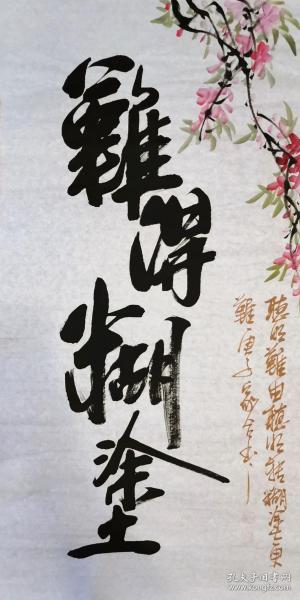 難得糊塗
聰明難由聰明轉糊塗更
難庚子
孔夫子旧书网
www.kongfz.com